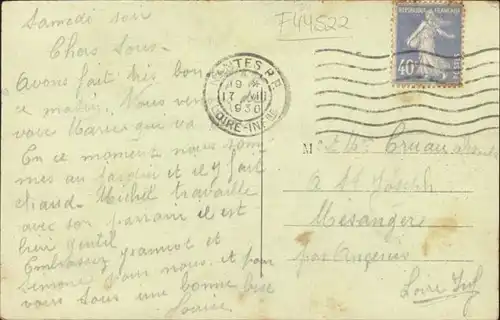 Samedi soir
F44S22
Chers tous
Avons fait très bon
ce matin. Nous
voir
En ce moment nous som
mes au jardin et il y fait
chaud. Michel travaille
avec son parrain il est
bien gentil
Embrassez et
Simone pour nous. et pour
vous tous une bonne bise
NANTES R.P.
19
17
1930
LOIRE-INFRE
REPUBLIQUE FRANÇAISE
40
M
à St Joseph
Mésanger
par Ancenis
Loire Inf